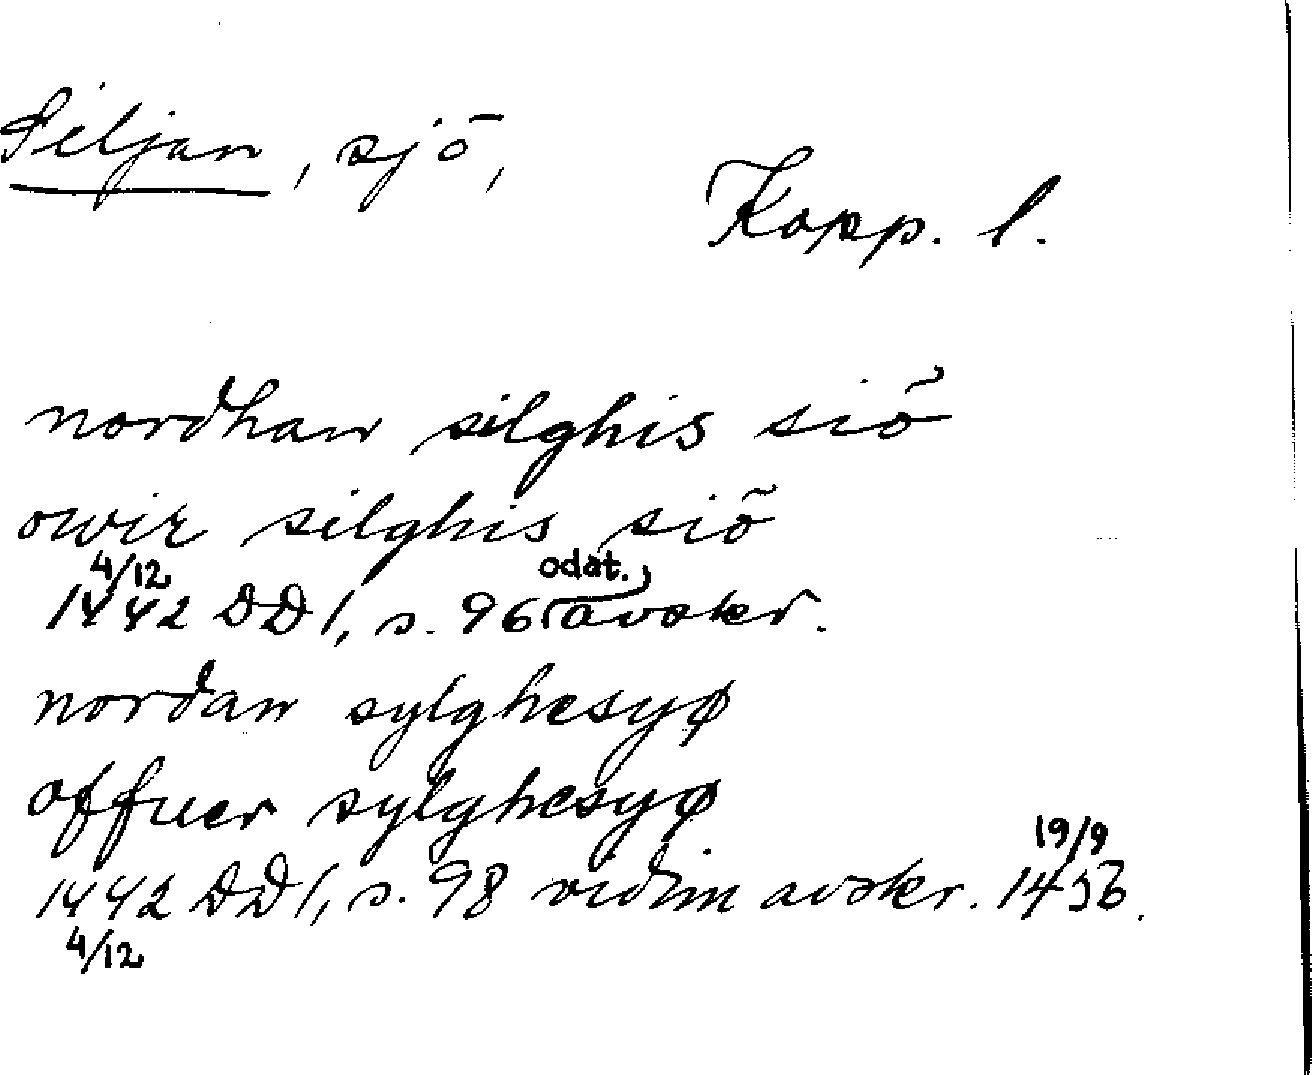 Siljan, sjö,
Kopp. l.
nordhan silghis siö
owir silghis siö
1442 4/12 DD 1, s. 96 (odat.) avskr.
nordan sylghesyø
offuer sylghesyø
1442 4/12 DD 1, s. 98 vidim avskr. 19/9 1456.